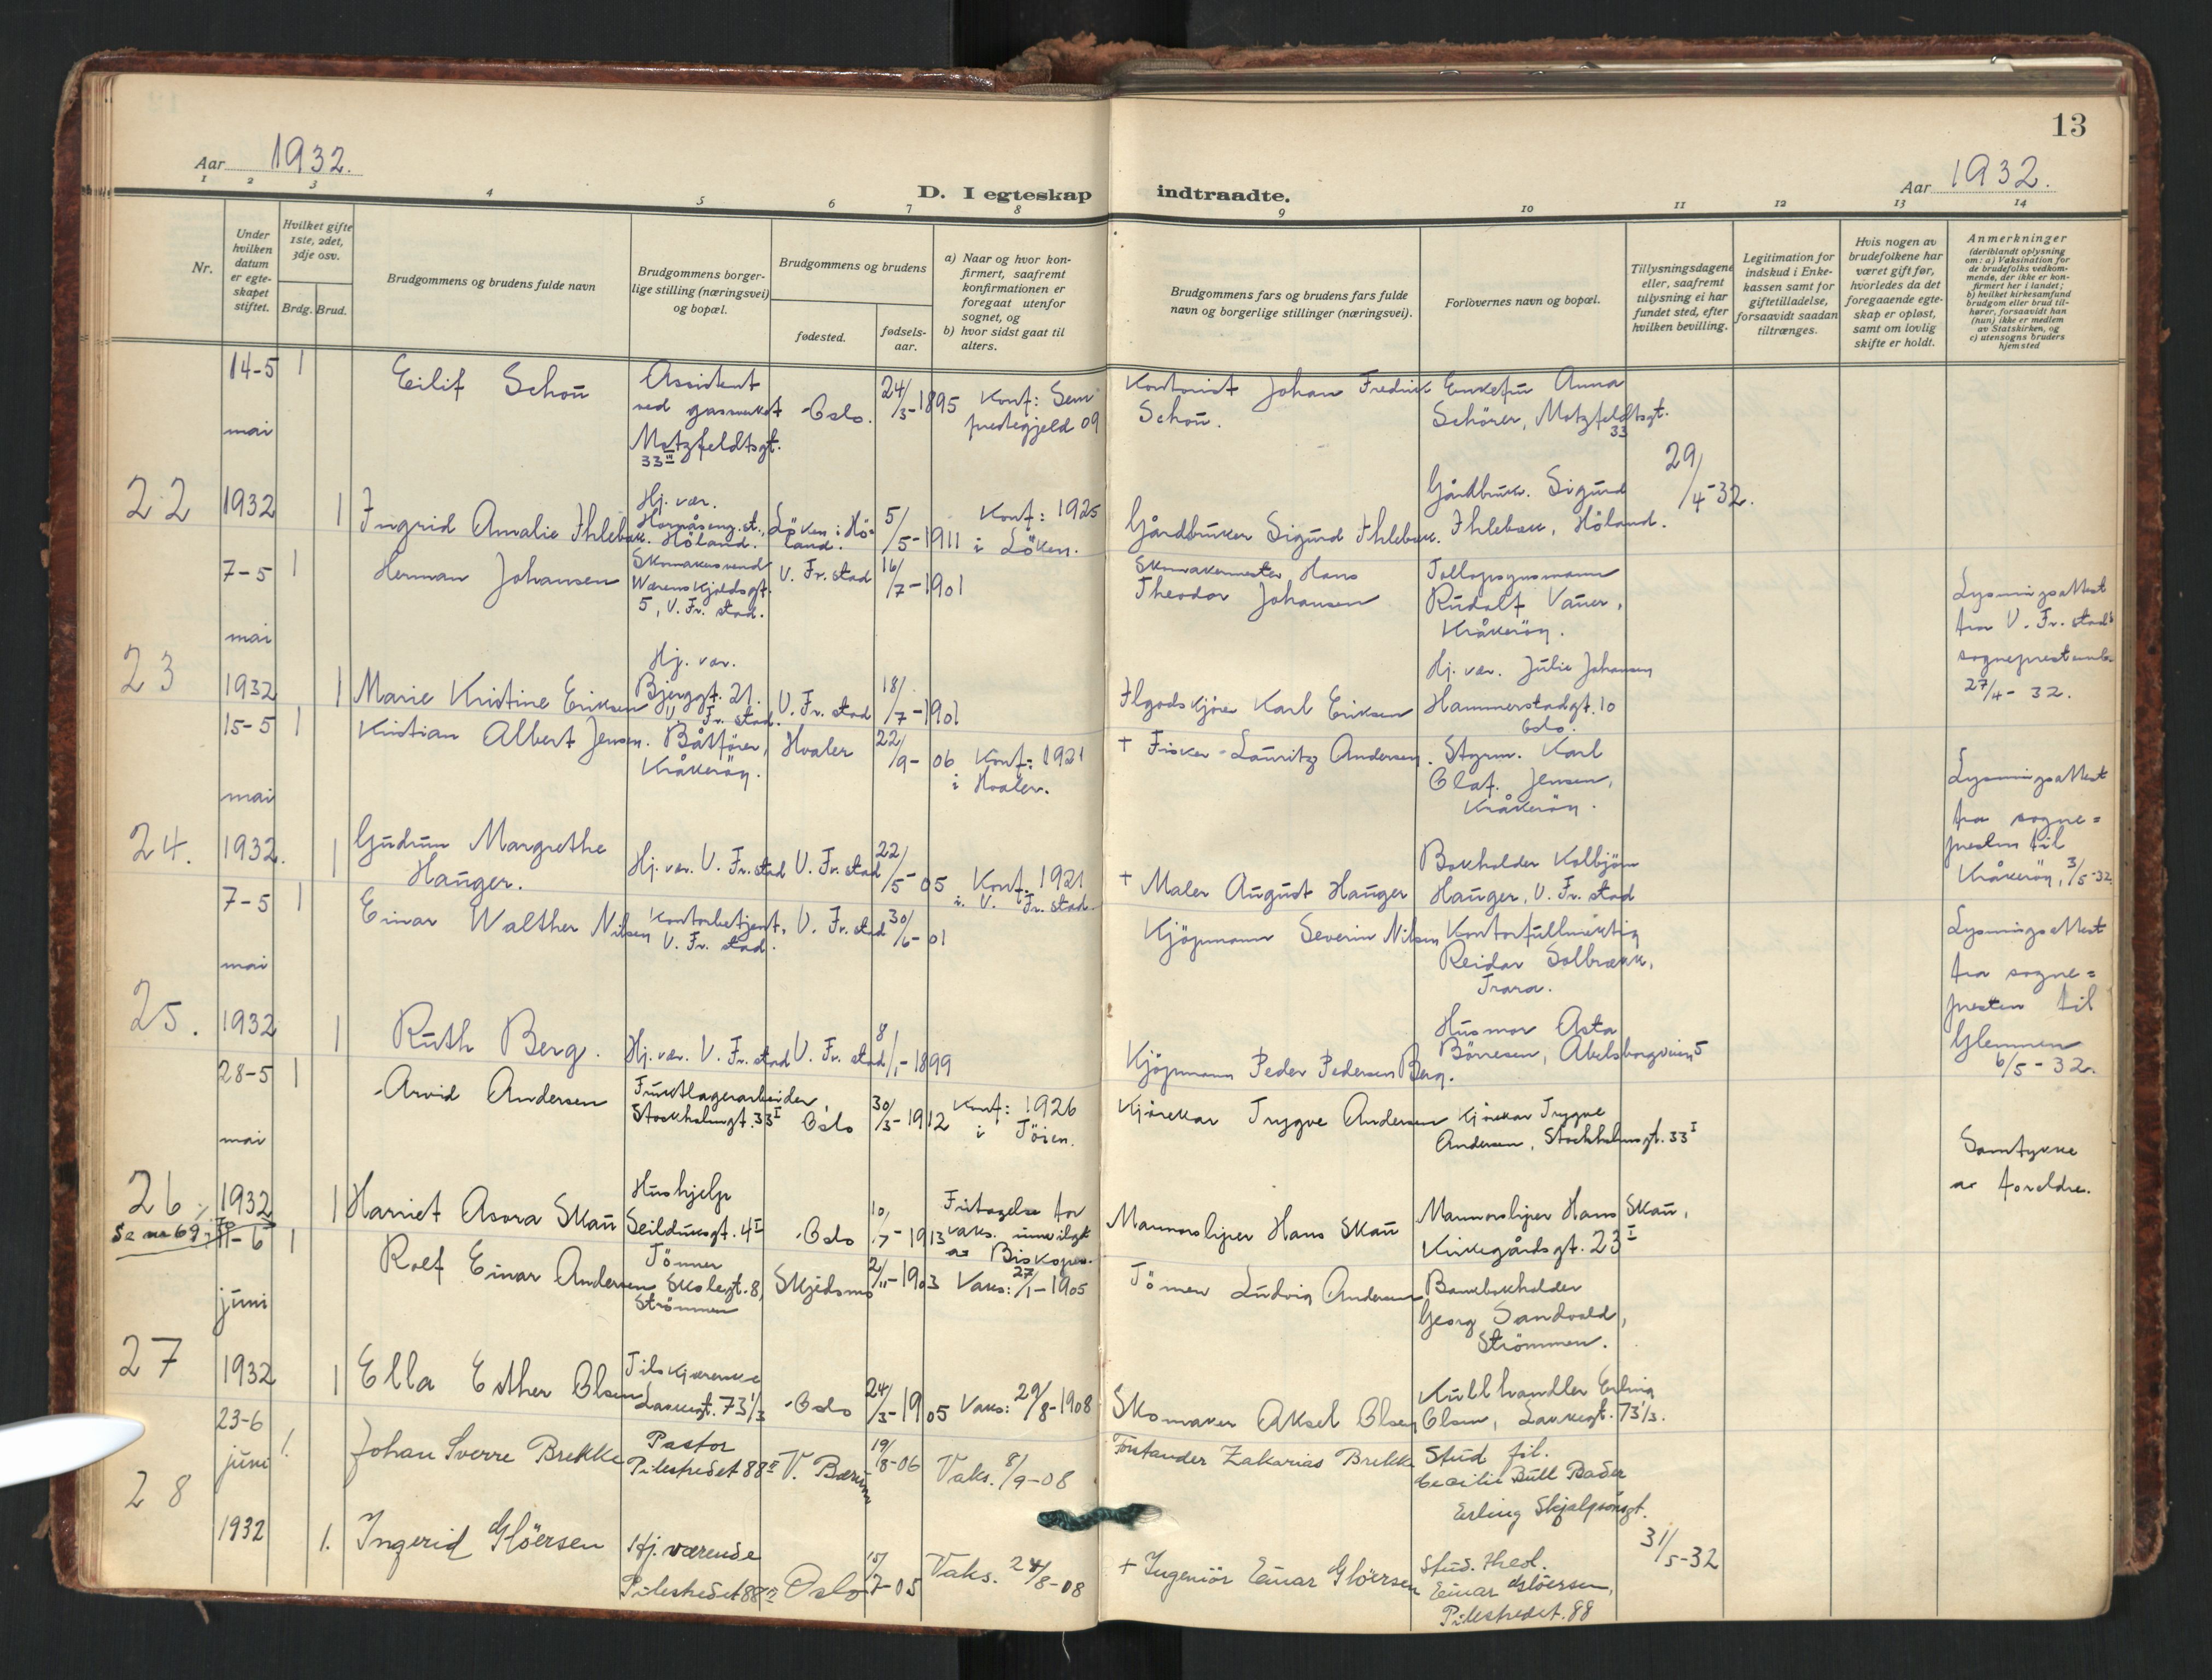 13
Aar 1932.
D. I egteskap indtraadte.
Aar 1932.
1 2 3 4 5 6 7 8 9 10 11 12 13 14
Nr.
Under hvilken datum er egteskapet stiftet.
Hvilket gifte 1ste, 2det, 3dje osv.
Brdg. Brud.
Brudgommens og brudens fulde navn
Brudgommens borgerlige stilling (næringsvei) og bopæl.
Brudgommens og brudens
fødested.
fødselsaar.
a) Naar og hvor konfirmert, saafremt konfirmationen er foregaat utenfor sognet, og
b) hvor sidst gaat til alters.
Brudgommens fars og brudens fars fulde navn og borgerlige stillinger (næringsvei).
Forlovernes navn og bopæl.
Tillysningsdagene eller, saafremt tillysning ei har fundet sted, efter hvilken bevilling.
Legitimation for indskud i Enkekassen samt for giftetilladelse, forsaavidt saadan tiltrænges.
Hvis nogen av brudefolkene har været gift før, hvorledes da det foregaaende egteskap er opløst, samt om lovlig skifte er holdt.
Anmerkninger
(deriblandt oplysning om: a) Vaksination for de brudefolks vedkommende, der ikke er konfirmert her i landet;
b) hvilket kirkesamfund brudgom eller brud tilhører, forsaavidt han (hun) ikke er medlem av Statskirken, og
c) utensogns bruders hjemsted
22
14-5 mai 1932
1
Eilif Schou
Assistent ved gassverket
Motzfeldtsgt. 33 III
Oslo.
24/3-1895
Konf: Sem prestegjeld 09
Kontorist Johan Fredrik Schou.
Enkefru Anna Schörer, Motzfeldtsgt. 33
29/4-32.
1
Ingrid Amalie Ihlebæk.
Hj. vær.
Höland.
Löken i Höland.
5/5-1911
Konf: 1925 i Löken.
Gårdbruker Sigurd Ihlebæk.
Gårdbruk. Sigurd Ihlebæk, Höland.
23
7-5 mai 1932
1
Herman Johansen
Skomakersvend
Wærenskjoldsgt. 5, V. Fr. stad.
V. Fr. stad
16/7-1901
Skomakermester Hans Theodor Johansen
Tollopsynsmann Rudolf Vauer, Kråkeröy.
Lysningsattest fra V. Fr. stads sogneprestemb. 27/4-32.
1
Marie Kristine Eriksen
Hj. vær.
Bjerggt. 21. V. Fr. stad.
V. Fr. stad
18/7-1901
Ilgodskjörer Karl Eriksen
Hj. vær. Julie Johansen
Hammerstadgt. 10 Oslo.
24.
15-5 mai 1932.
1
Kristian Albert Jensen.
Båtförer, Kråkeröy.
Hvaler
22/9-06
Konf: 1921 i Hvaler.
+ Fisker Lauritz Andersen.
Styrm. Karl Olaf Jensen, Kråkeröy.
Lysningsattest fra sogne=presten til Kråkeröy, 3/5-32.
1
Gudrun Margrethe Hauger.
Hj. vær. V. Fr. stad
V. Fr. stad
22/5-05
Konf. 1921 i V. Fr. stad.
+ Maler August Hauger
Bokholder Kolbjörn Hauger, V. Fr. stad
25.
7-5 mai 1932
1
Einar Walther Nilsen
Kontorbetjent, V. Fr. stad.
V. Fr. stad
30/6-01
Kjöpmann Severin Nilsen
Kontorfullmektig Reidar Solbrækk, Trara.
Lysningsattest fra sogne=presten til Glemmen 6/5-32.
1
Ruth Berg.
Hj. vær. V. Fr. stad
V. Fr. stad
8/1-1899
Kjöpmann Peder Pedersen Berg.
Husmor Asta Börresen, Abelsborgveien 5
26
28-5 mai 1932
1
Arvid Andersen
Fruktlagerarbeider,
Stockholmgt. 33 I
Oslo
30/3-1912
Konf: 1926 i Töien.
Kjörekar Trygve Andersen
Kjörekar Trygve Andersen, Stockholmsgt. 33 I
Samtykke av foreldre.
Se nr 69
1
Harriet Asora Skau
Hushjelp
Seilduksgt. 4 I
Oslo
10/7-1913
Fritagelse for vaks. innvilget av Biskopen.
Murmorsliper Hans Skau
Marmorsliper Hans Skau, Kirkegårdsgt. 23 I
27
11-6 juni 1932
1
Rolf Einar Andersen
Tömmer
Skolegt. 8, Strömmen
Skjedsmo
2/11-1903
Vaks: 27/1-1905
Tömmer Ludvig Andersen
Bankbokholder Georg Sandvold, Strömmen.
1
Ella Esther Olsen
Tilskjærerske
Lakkegt. 73 1/3
Oslo
24/3-1905
Vaks: 29/8-1908
Skomaker Aksel Olsen
Kullhandler Erling Olsen, Lakkegt. 73 1/3.
28
23-6 juni 1932
1.
Johan Sverre Brekke
Pastor
Pilestredet 88 II
V. Bærum
19/8-06
Vaks. 8/9-08
Forstander Zakarias Brekke
Stud fil. Cecilie Bull Bader
Erling Skjalgsönsgt.
31/5-32
1.
Ingerid Glöersen
Hj. værende
Pilestredet 88 II
Oslo
15/7-05
Vaks. 24/8-08
+ Ingeniör Einar Glöersen
Stud. theol. Einar Glöersen, Pilestredet. 88